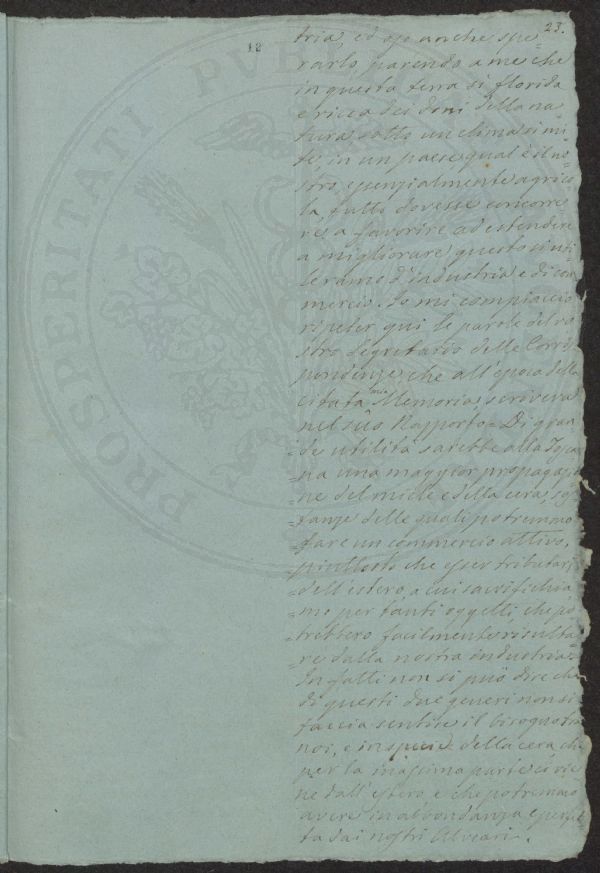 23.
12
tria, ed oso anche spe=
rarlo parendo a me che
in questa terra sì florida
e ricca dei doni della na
tura sotto un clima sì mi=
te, in un paese qual'è il no=
stro, essenzialmente agrico=
la, tutto dovesse concorre
re a favorire ad estendere
a migliorare questo sì uti
le ramo d'industria e di com
mercio. Io mi compiaccio
ripeter qui le parole del no
stro Segretario delle Corris
pondenze che all'epoca della
citata mia Memoria, scriveva
nel suo Rapporto = Di gran
=de utilità sarebbe alla Tosca
=na una maggior propagazio
=ne del miele e della cera, sos
=tanze delle quali potremmo
=fare un commercio attivo,
=piuttosto che esser tributarj
=dell'estero, a cui sacrifichia
=mo per tanti oggetti, che po
=trebbero facilmente risulta
=re dalla nostra industria =
In fatti non si può dire che
di questi due generi non si
faccia sentire il bisogno tra
noi, e in specie della cera, che
per la massima parte ci vie
ne dall'estero e che potremmo
avere in abbondanza e perfet
ta dai nostri Alveari.
PROSPERITATI PVBLICAE